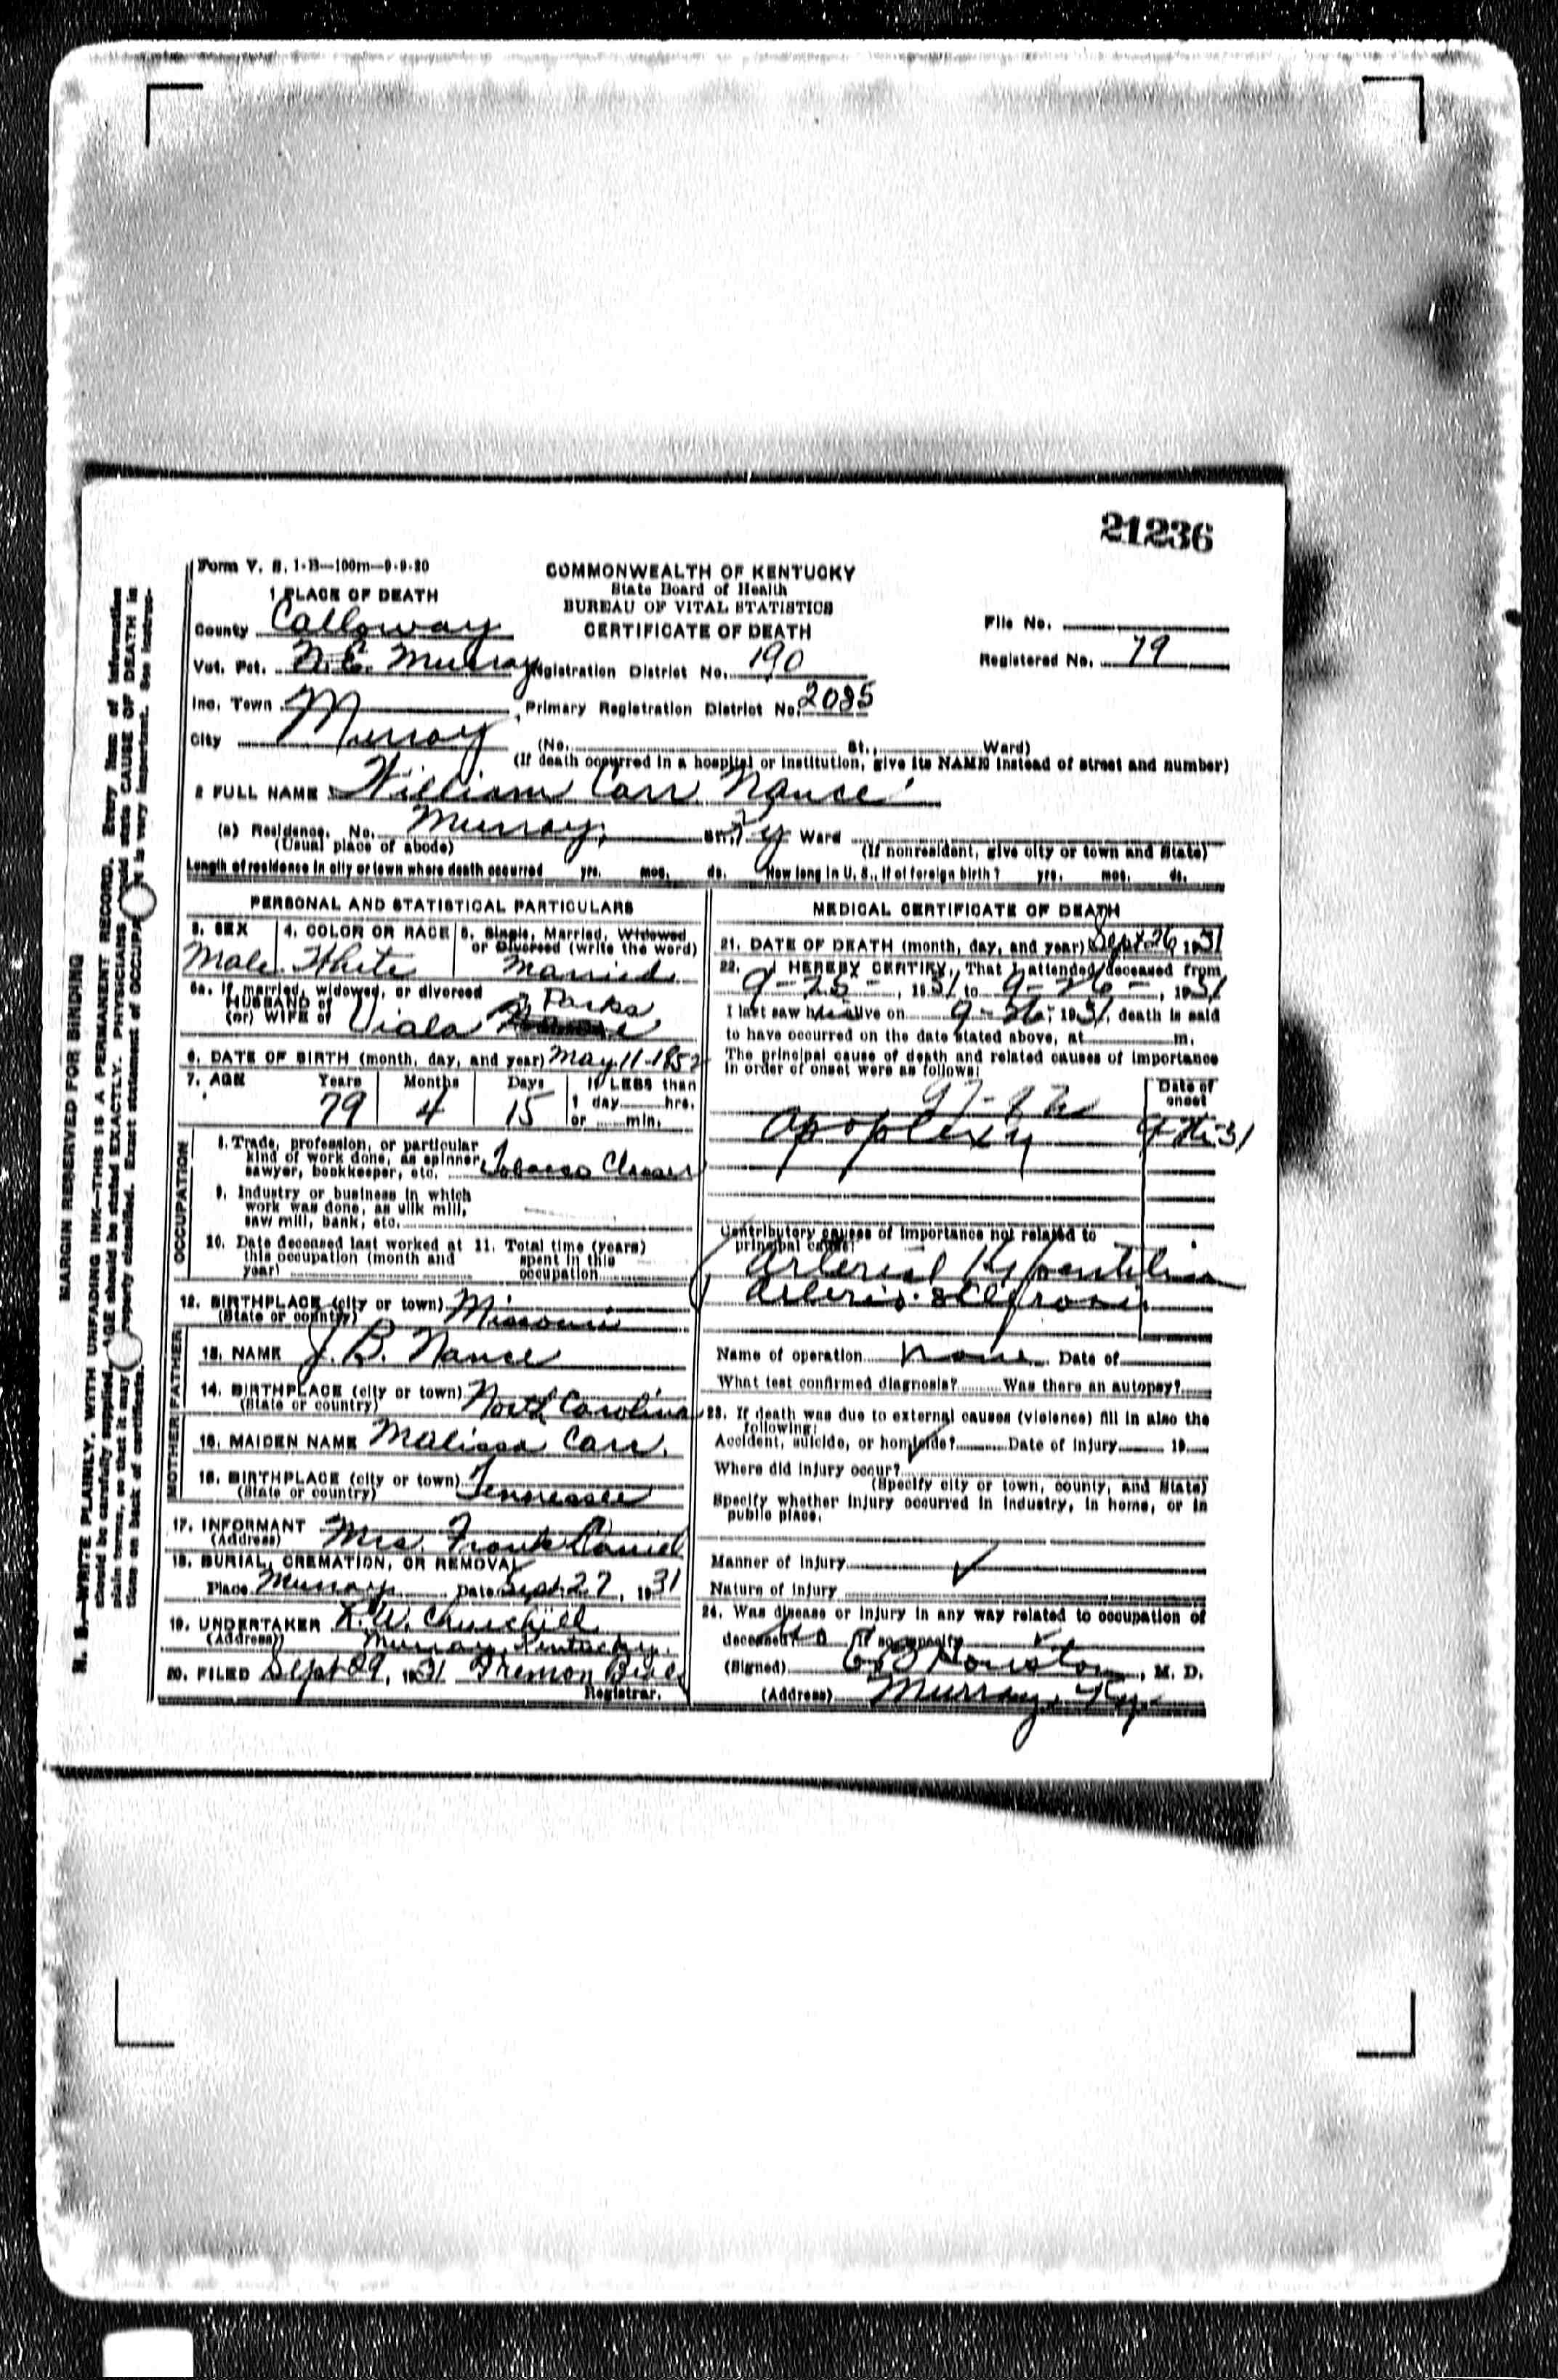 21236
Form V. S. 1-B—100m—9-9-30
COMMONWEALTH OF KENTUCKY
State Board of Health
BUREAU OF VITAL STATISTICS
CERTIFICATE OF DEATH
1 PLACE OF DEATH
County Calloway
File No.
Vot. Pct. N.E. Murray Registration District No. 190
Registered No. 79
Inc. Town
Primary Registration District No. 2085
City Murray (No. St., Ward)
(If death occurred in a hospital or institution, give its NAME instead of street and number)
2 FULL NAME William Carr Nance
(a) Residence. No. Murray, St., Ky Ward
(Usual place of abode) (If nonresident, give city or town and State)
Length of residence in city or town where death occurred yrs. mos. ds. How long in U. S., if of foreign birth? yrs. mos. ds.
PERSONAL AND STATISTICAL PARTICULARS
3. SEX 4. COLOR OR RACE 5. Single, Married, Widowed
or Divorced (write the word)
Male White Married
5a. If married, widowed, or divorced
HUSBAND of
(or) WIFE of Viala Parks
6. DATE OF BIRTH (month, day, and year) May 11-1852
7. AGE Years Months Days If LESS than
1 day hrs.
or min.
79 4 15
OCCUPATION
8. Trade, profession, or particular
kind of work done, as spinner,
sawyer, bookkeeper, etc. Tobacco
9. Industry or business in which
work was done, as silk mill,
saw mill, bank, etc.
10. Date deceased last worked at
this occupation (month and
year)
11. Total time (years)
spent in this
occupation
12. BIRTHPLACE (city or town) Missouri
(State or country)
FATHER
13. NAME J. B. Nance
14. BIRTHPLACE (city or town) North Carolina
(State or country)
MOTHER
15. MAIDEN NAME Malissa Carr.
16. BIRTHPLACE (city or town) Tennessee
(State or country)
17. INFORMANT Mrs. Frank Daniel
(Address)
18. BURIAL, CREMATION, OR REMOVAL
Place Murray Date Sept 27, 1931
19. UNDERTAKER R.W. Churchill
(Address) Murray Kentucky.
20. FILED Sept 29, 1931
Registrar.
MEDICAL CERTIFICATE OF DEATH
21. DATE OF DEATH (month, day, and year) Sept 26 1931
22. I HEREBY CERTIFY, That I attended deceased from
9-25-, 1931 to 9-26-, 1931
I last saw h alive on 9-26, 1931, death is said
to have occurred on the date stated above, at m.
The principal cause of death and related causes of importance
in order of onset were as follows:
Date of
onset
Apoplexy 9-26-31
Contributory causes of importance not related to
principal cause:
Arterial
Name of operation None Date of
What test confirmed diagnosis? Was there an autopsy?
23. If death was due to external causes (violence) fill in also the
following:
Accident, suicide, or homicide? Date of injury 19
Where did injury occur?
(Specify city or town, county, and State)
Specify whether injury occurred in industry, in home, or in
public place.
Manner of injury
Nature of injury
24. Was disease or injury in any way related to occupation of
deceased? No If so, specify
(Signed) Houston, M. D.
(Address) Murray, Ky.
MARGIN RESERVED FOR BINDING
N. B.—WRITE PLAINLY, WITH UNFADING INK—THIS IS A PERMANENT RECORD. Every item of information
should be carefully supplied. AGE should be stated EXACTLY. PHYSICIANS should state CAUSE OF DEATH in
plain terms, so that it may properly classified. Exact statement of OCCUPA is very important. See instruc-
tions on back of certificate.